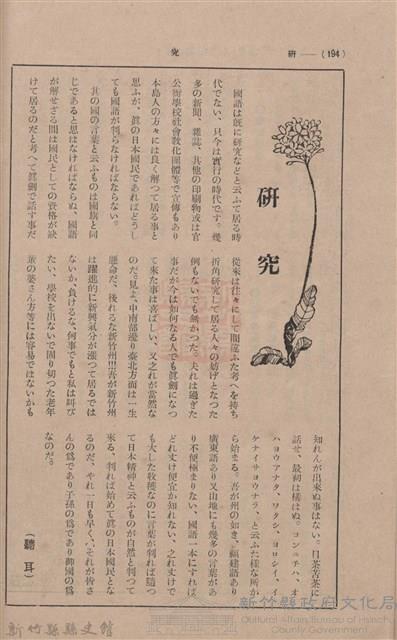 研 —— (194)
究
研究
國語は既に研究などと云ふて居る時
代でない、只今は實行の時代です。幾
多の新聞、雜誌、其他の印刷物或は官
公衙學校社會敎化團體等で宣傳もあり
本島人の方々には良く解つて居る事と
思ふが、眞の日本國民であればどうし
ても國語が判らなければならない。
其の國の言葉と云ふものは國旗と同
じであると思はなければならぬ、國語
が解せざる間は國民としての資格が缺
けて居るのだと考へて眞劍で話す事だ
從來は往々にして間違ふた考へを持ち
折角研究して居る人々の妨げとなつた
例もないでも無かつた。夫れは過ぎた
事だが今は如何なる人でも眞劍になつ
て來た事は喜ばしい、又之れが當然な
のだ。見よ、中南部邊り臺北方面は一生
懸命だ、後れるな新竹州!!!吾が新竹州
は躍進的に新興氣分が漲つて居るでは
ないか、負けるな、何事でもと私は叫び
たい、學校を出ないで困り切つた老年
輩の婆さん方等には容易ではないかも
知れんが出來ぬ事はない。目茶苦茶に
話せ、最初は構はぬ。コンニチハ、オ
ハヨウアナタ、ワタシ、ヨロシイ、イ
ケナイサヨウナラ、と云ふた樣な所か
ら始まる。吾が州の如き、福建語あり
廣東語あり又山地にも幾多の言葉があ
り不便極まりない、國語一本にすれば
どれ丈け便宜か知れない、之れ丈けで
も大した收穫なのに言葉が判れば隨つ
て日本精神と云ふものが自然と判つて
來る、判れば始めて眞の日本國民とな
るのだ、やれ一日も早く、それが皆さ
んの爲であり子孫の爲であり御國の爲
なのだ。
(聽耳)
新竹縣縣史館
新竹縣政府文化局
Cultural Affairs Bureau of Hsinchu
County Government